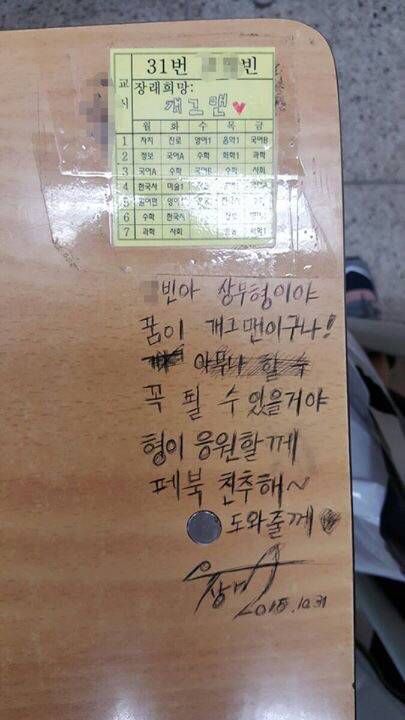 31번 빈
장래희망:
개그맨
교시
월 화 수 목 금
1 자치 진로 영어1 음악1 국어B
2 정보 국어A 수학 화학1 과학
3 국어A 수학 국어B 수학 사회
4 한국사 미술1
5
6 수학 한국사
7 과학 사회
빈아 상무형이야
꿈이 개그맨이구나!
아무나 할 수
꼭 될 수 있을거야
형이 응원할께
페북 친추해~
도와줄께
2015.10.31